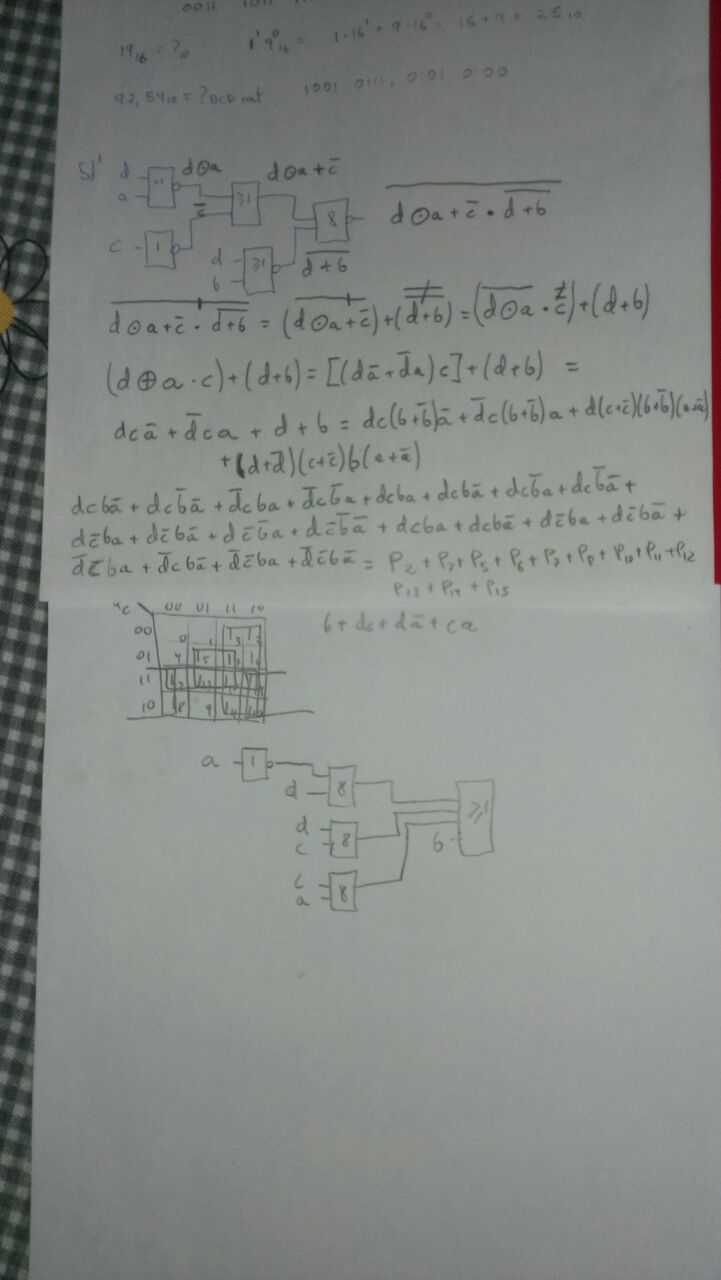 0011 1011
19₁₆ = ?₁₀ 1¹9⁰₁₆ = 1·16¹ + 9·16⁰ = 16+9 = 25₁₀
97,54₁₀ = ?BCD nat 1001 0111, 0101 0100
5)'
d a d⊙a d⊙a+c̄
=1 ≥1 8
c 1 c̄
d b ≥1 \overline{d+b}
\overline{d⊙a+c̄ · \overline{d+b}}
\overline{d⊙a+c̄ · \overline{d+b}} = (\overline{d⊙a+c̄})+(\overline{\overline{d+b}}) = (\overline{d⊙a} · \overline{c̄})+(d+b)
(d⊕a·c)+(d+b) = [(dā+d̄a)c]+(d+b) =
dcā + d̄ca + d + b = dc(b+b̄)ā + d̄c(b+b̄)a + d(c+c̄)(b+b̄)(a+ā)
+(d+d̄)(c+c̄)b(a+ā)
dcbā + dcb̄ā + d̄cba + d̄cb̄a + dcba + dcbā + dcb̄a + dcb̄ā +
dc̄ba + dc̄bā + dc̄b̄a + dc̄b̄ā + dcba + dcbā + dc̄ba + dc̄bā +
d̄cba + d̄cbā + d̄c̄ba + d̄c̄bā = P₂ + P₃ + P₅ + P₆ + P₇ + P₈ + P₁₀ + P₁₁ + P₁₂
P₁₃ + P₁₄ + P₁₅
00 01 11 10
00 0 1 1₃ 1₂
01 4 1₅
11
10 1₈ 9
b + dc + dā + ca
a 1
d 8
d c 8 b ≥1
c a 8